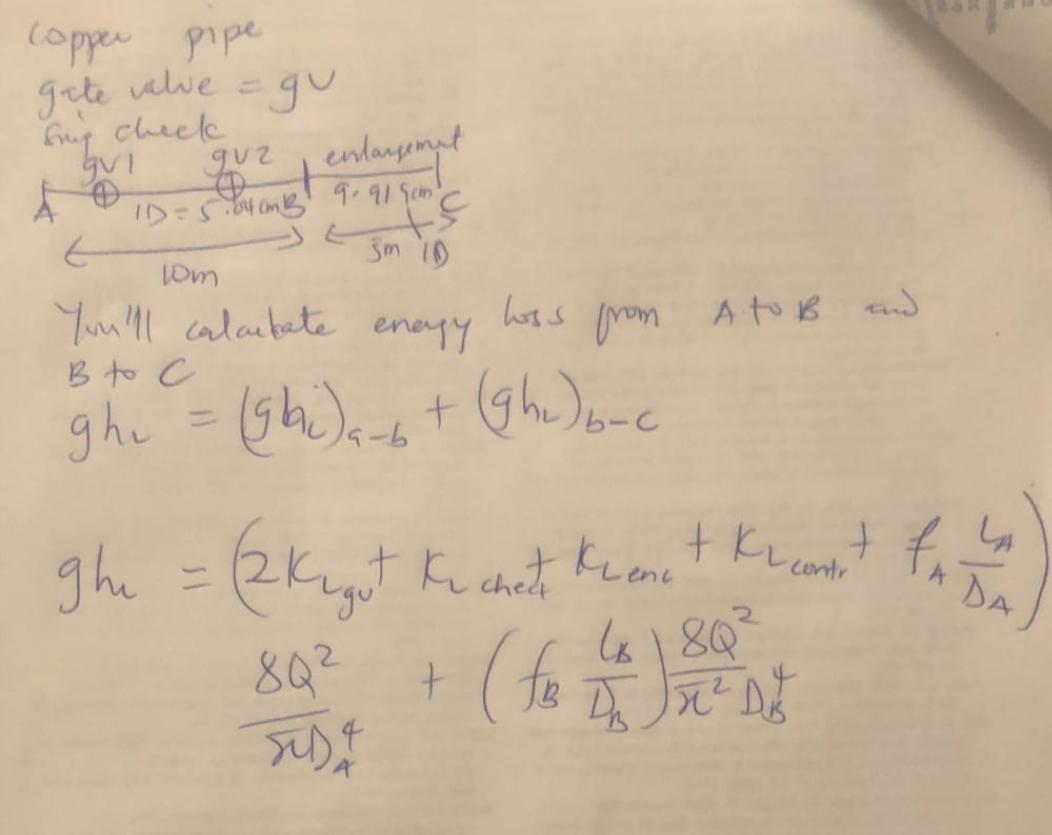 copper pipe
gate valve = gv
check
gv1 gv2 enlargement
A ID = 5.04cm B 9.919cm C
10m 5m ID
You'll calculate energy loss from A to B and
B to C
ghL = (ghL)a-b + (ghL)b-c
ghL = (2KLgv + KL check + KL enl + KL contr + fA LA/DA)
8Q²/πDA⁴ + (fB LB/DB) 8Q²/π² DB⁴